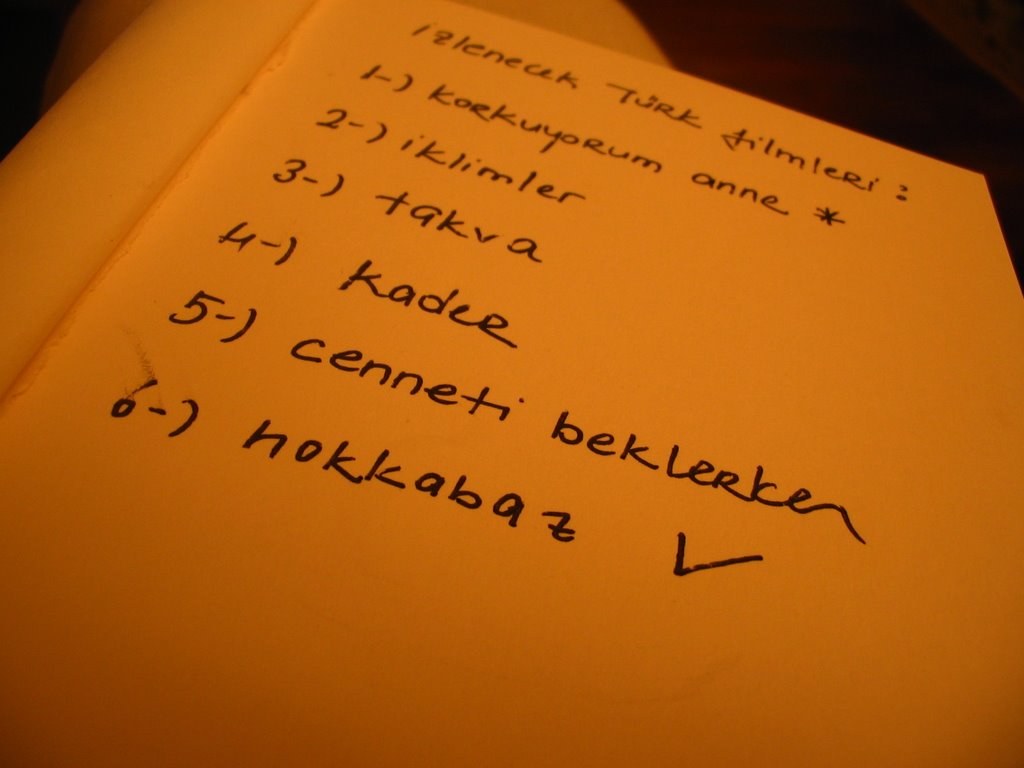 izlenecek Türk filmleri:
1-) korkuyorum anne *
2-) iklimler
3-) takva
4-) kader
5-) cenneti beklerken
6-) hokkabaz ✓